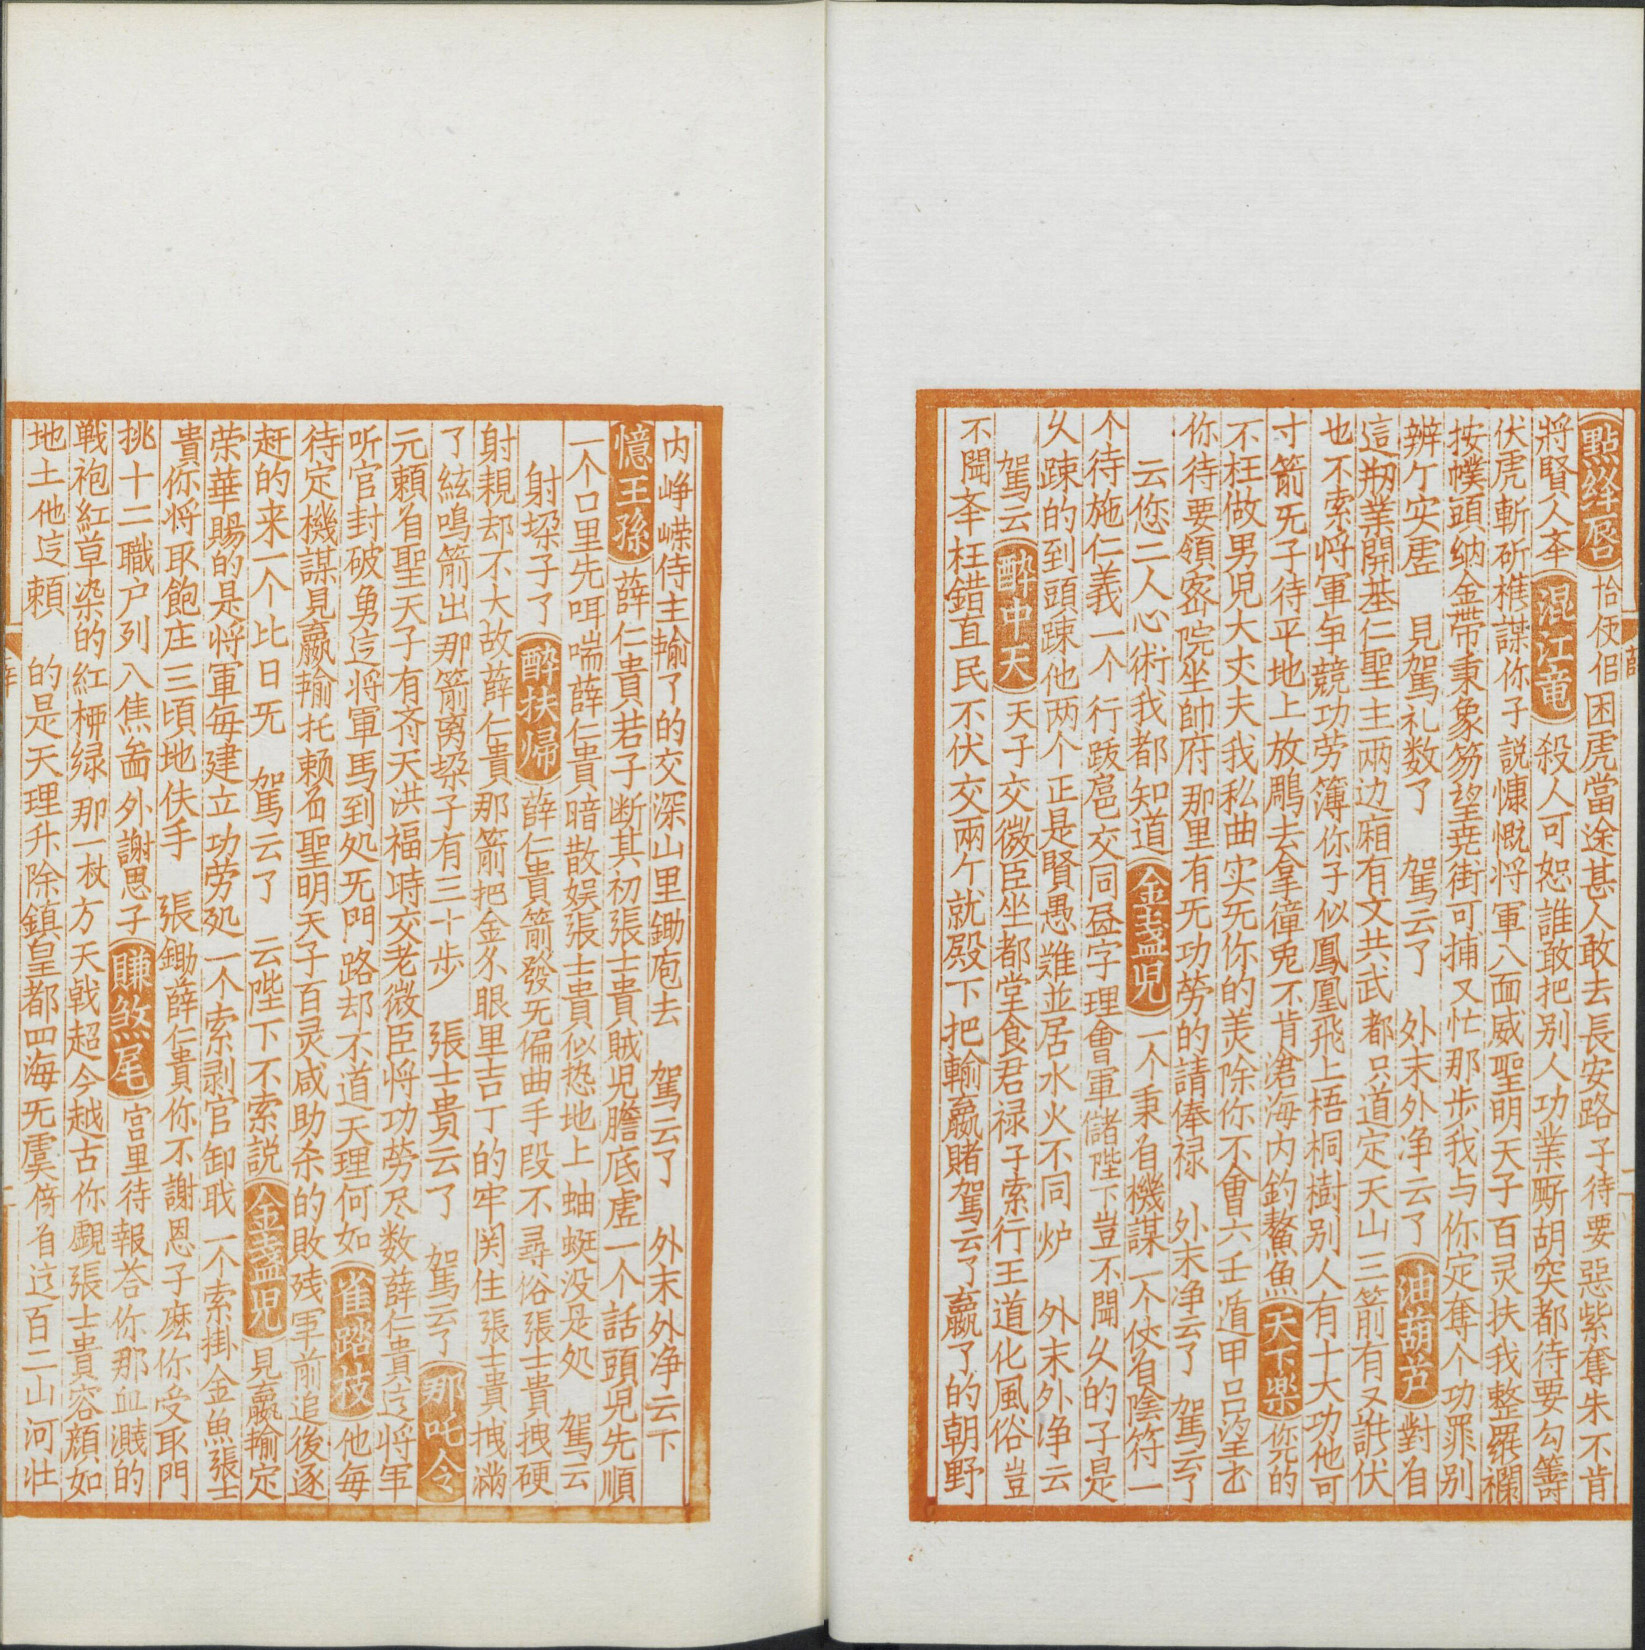 點絳唇 恰便佀困虎當途甚人敢去長安路子待要惡紫奪朱不肯
將賢人夲 混江竜 殺人可恕誰敢把别人功業厮胡突都待要勾籌
伏虎斬斫樵謀你子説慷慨将軍八面威聖明天子百灵扶我整羅襴
按幞頭纳金帶秉象笏望尭街可捕又忙那步我与你定奪个功罪别
辨个安𠩄 見駕礼数了 駕云了 外末外净云了 油葫芦 對自
這刱業開基仁聖主两边廂有文共武都只道定天山三箭有又説伏
也不索将軍每競功劳簿你子似鳳凰飛上梧桐樹别人有十大功他可
寸箭旡子待平地上放鵰去拿撞兎不肯滄海内釣鰲魚 天下楽 你的
不枉做男児大丈夫我私曲实旡你的美除你不會六壬遁甲吕望
你待要領宻院坐帥府那里有旡功勞的請俸禄 外末净云了 駕云了
云您二人心術我都知道 金盞児 一个秉有機謀一个伏有陰符一
个待施仁義一个行跋扈交同𥁕字理會軍儲陛下豈不聞久的子是
久踈的到頭踈他两个正是賢愚難並居水火不同炉 外末外净云
駕云 醉中天 天子交微臣坐都堂食君禄子索行王道化風俗豈
不聞夲枉錯直民不伏交兩个就殿下把輸贏賭駕云了贏了的朝野
内峥嵘侍主輸了的交深山里鋤庖去 駕云了 外末外净云下
憶王孫 薛仁貴若子断其初張士貴賊児膽底虚一个話頭児先順
一个口里先咡喘薛仁貴暗散娱張士貴似热地上蚰蜒没是处 駕云
射垜子了 醉扶帰 薛仁貴箭發旡偏曲手段不尋俗張士貴拽硬
射親却不大故薛仁貴那箭把金尒眼里吉丁的牢関住張士貴拽滿
了絃鳴箭出那箭离垜子有三十步 張士貴云了 駕云了 那吒令
元頼着聖天子有齐天洪福時交老微臣将功勞尽数薛仁貴这将軍
听官封破勇这将軍馬到処旡門路却不道天理何如 雀踏枝 他每
待定機謀見贏輸托赖着聖明天子百灵咸助杀的敗残軍前追後逐
赶的来一个比日旡 駕云了 云陛下不索説 金盞児 見贏輸定
荣華賜的是将軍每建立功劳処一个索剥官卸耺一个索掛金魚張士
貴你将取飽庄三頃地伕手 張鋤薛仁貴你不謝恩子麽你受取門
挑十二職户列八焦啚外謝恩子 賺煞尾 宫里待報荅你那血濺的
戦袍紅草染的紅枦绿那一枚方天戟超今越古你覷張士貴容顔如
地土他这頼 的是天理升除鎮皇都四海旡虞倚着这百二山河壮